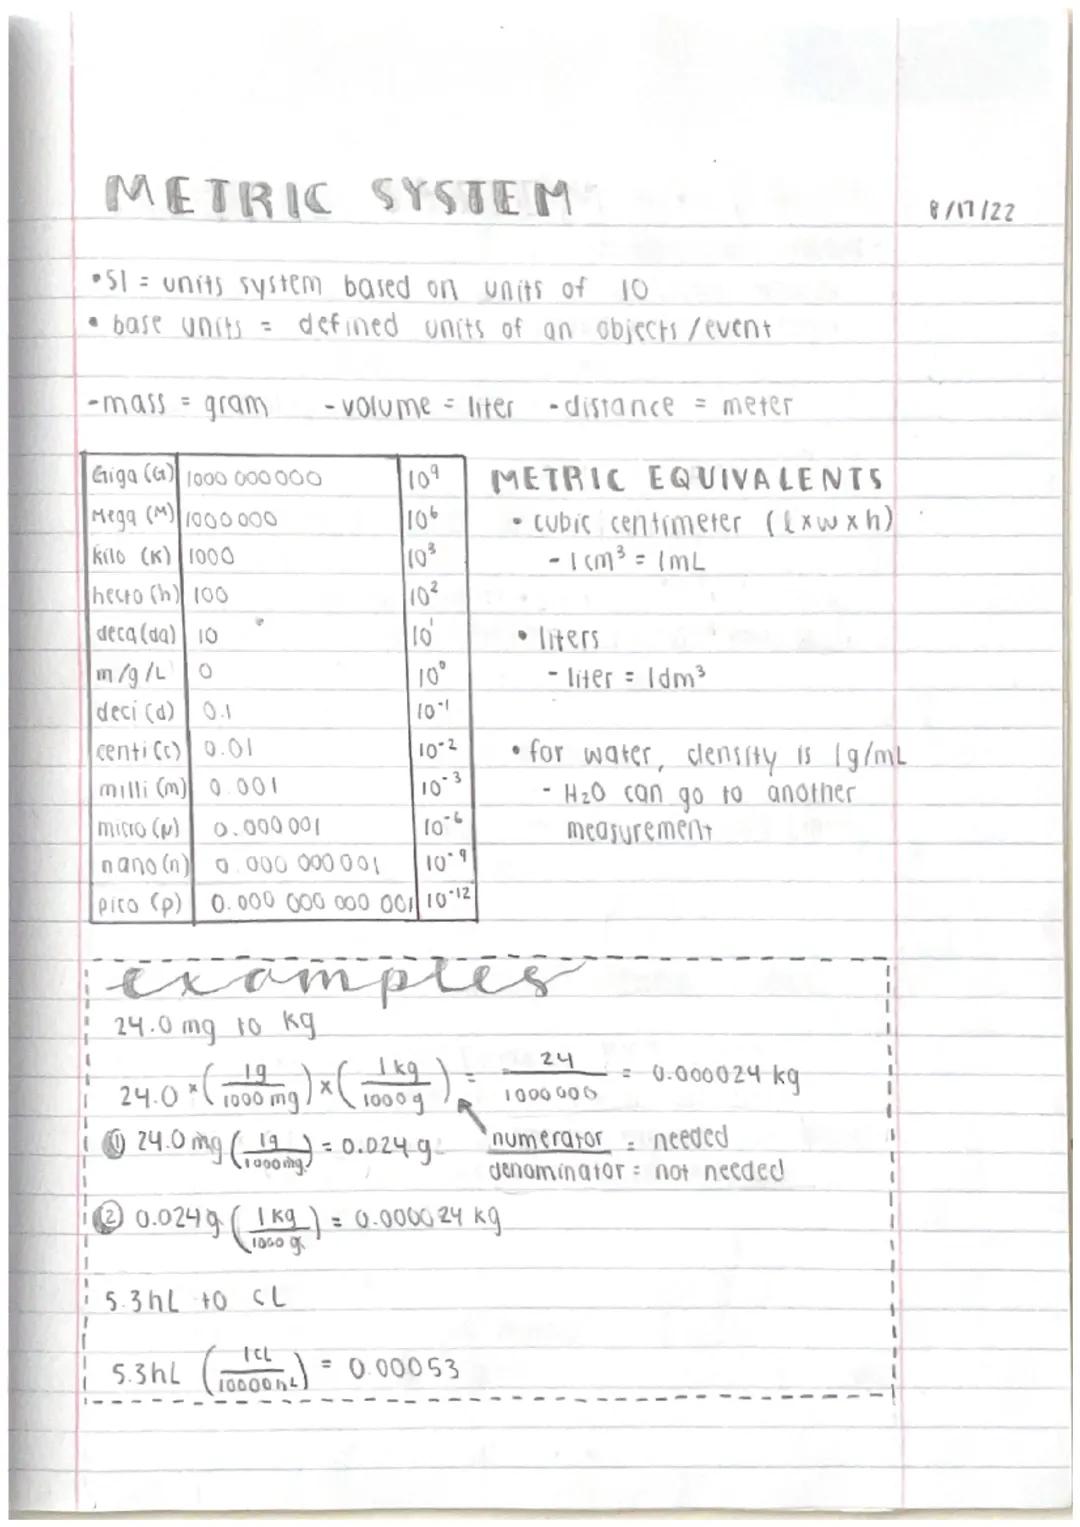 METRIC SYSTEM
8/17/22
•SI = units system based on units of 10
• base units = defined units of an objects/event
-mass = gram -volume = liter -distance = meter
Giga (G) 1000 000 000 10⁹
Mega (M) 1000 000 10⁶
Kilo (K) 1000 10³
hecto (h) 100 10²
deca (da) 10 10¹
m/g/L 0 10⁰
deci (d) 0.1 10⁻¹
centi (c) 0.01 10⁻²
milli (m) 0.001 10⁻³
micro (μ) 0.000 001 10⁻⁶
nano (n) 0.000 000 001 10⁻⁹
pico (p) 0.000 000 000 001 10⁻¹²
METRIC EQUIVALENTS
• cubic centimeter (l x w x h)
- 1 cm³ = 1mL
• liters
- liter = 1dm³
• for water, density is 1g/mL
- H₂O can go to another
measurement
examples
24.0 mg to kg
24.0 × (1g / 1000 mg) × (1 kg / 1000 g) = 24 / 1000000 = 0.000024 kg
① 24.0 mg (1g / 1000mg) = 0.024 g
numerator = needed
denominator = not needed
② 0.024 g (1 kg / 1000 g) = 0.000024 kg
5.3hL to cL
5.3hL (1cL / 10000hL) = 0.00053